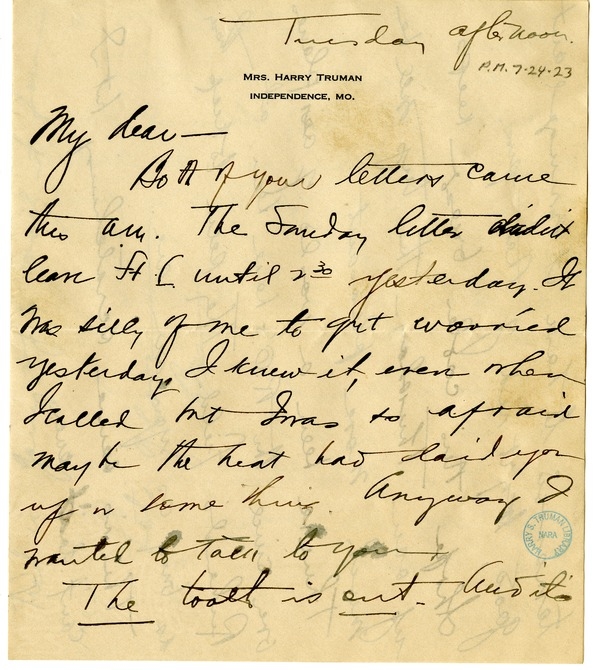 Tuesday afternoon.
P.M. 7-24-23
MRS. HARRY TRUMAN
INDEPENDENCE, MO.
My dear—
Both of your letters came
this am. The Sunday letter didn't
leave Ft. L until 2 30 yesterday. It
was silly of me to get worried
yesterday, I knew it, even when
I called but I was so afraid
maybe the heat had laid you
up or some thing. Anyway I
wanted to talk to you.
The tooth is out. And it's
HARRY S. TRUMAN LIBRARY
NARA